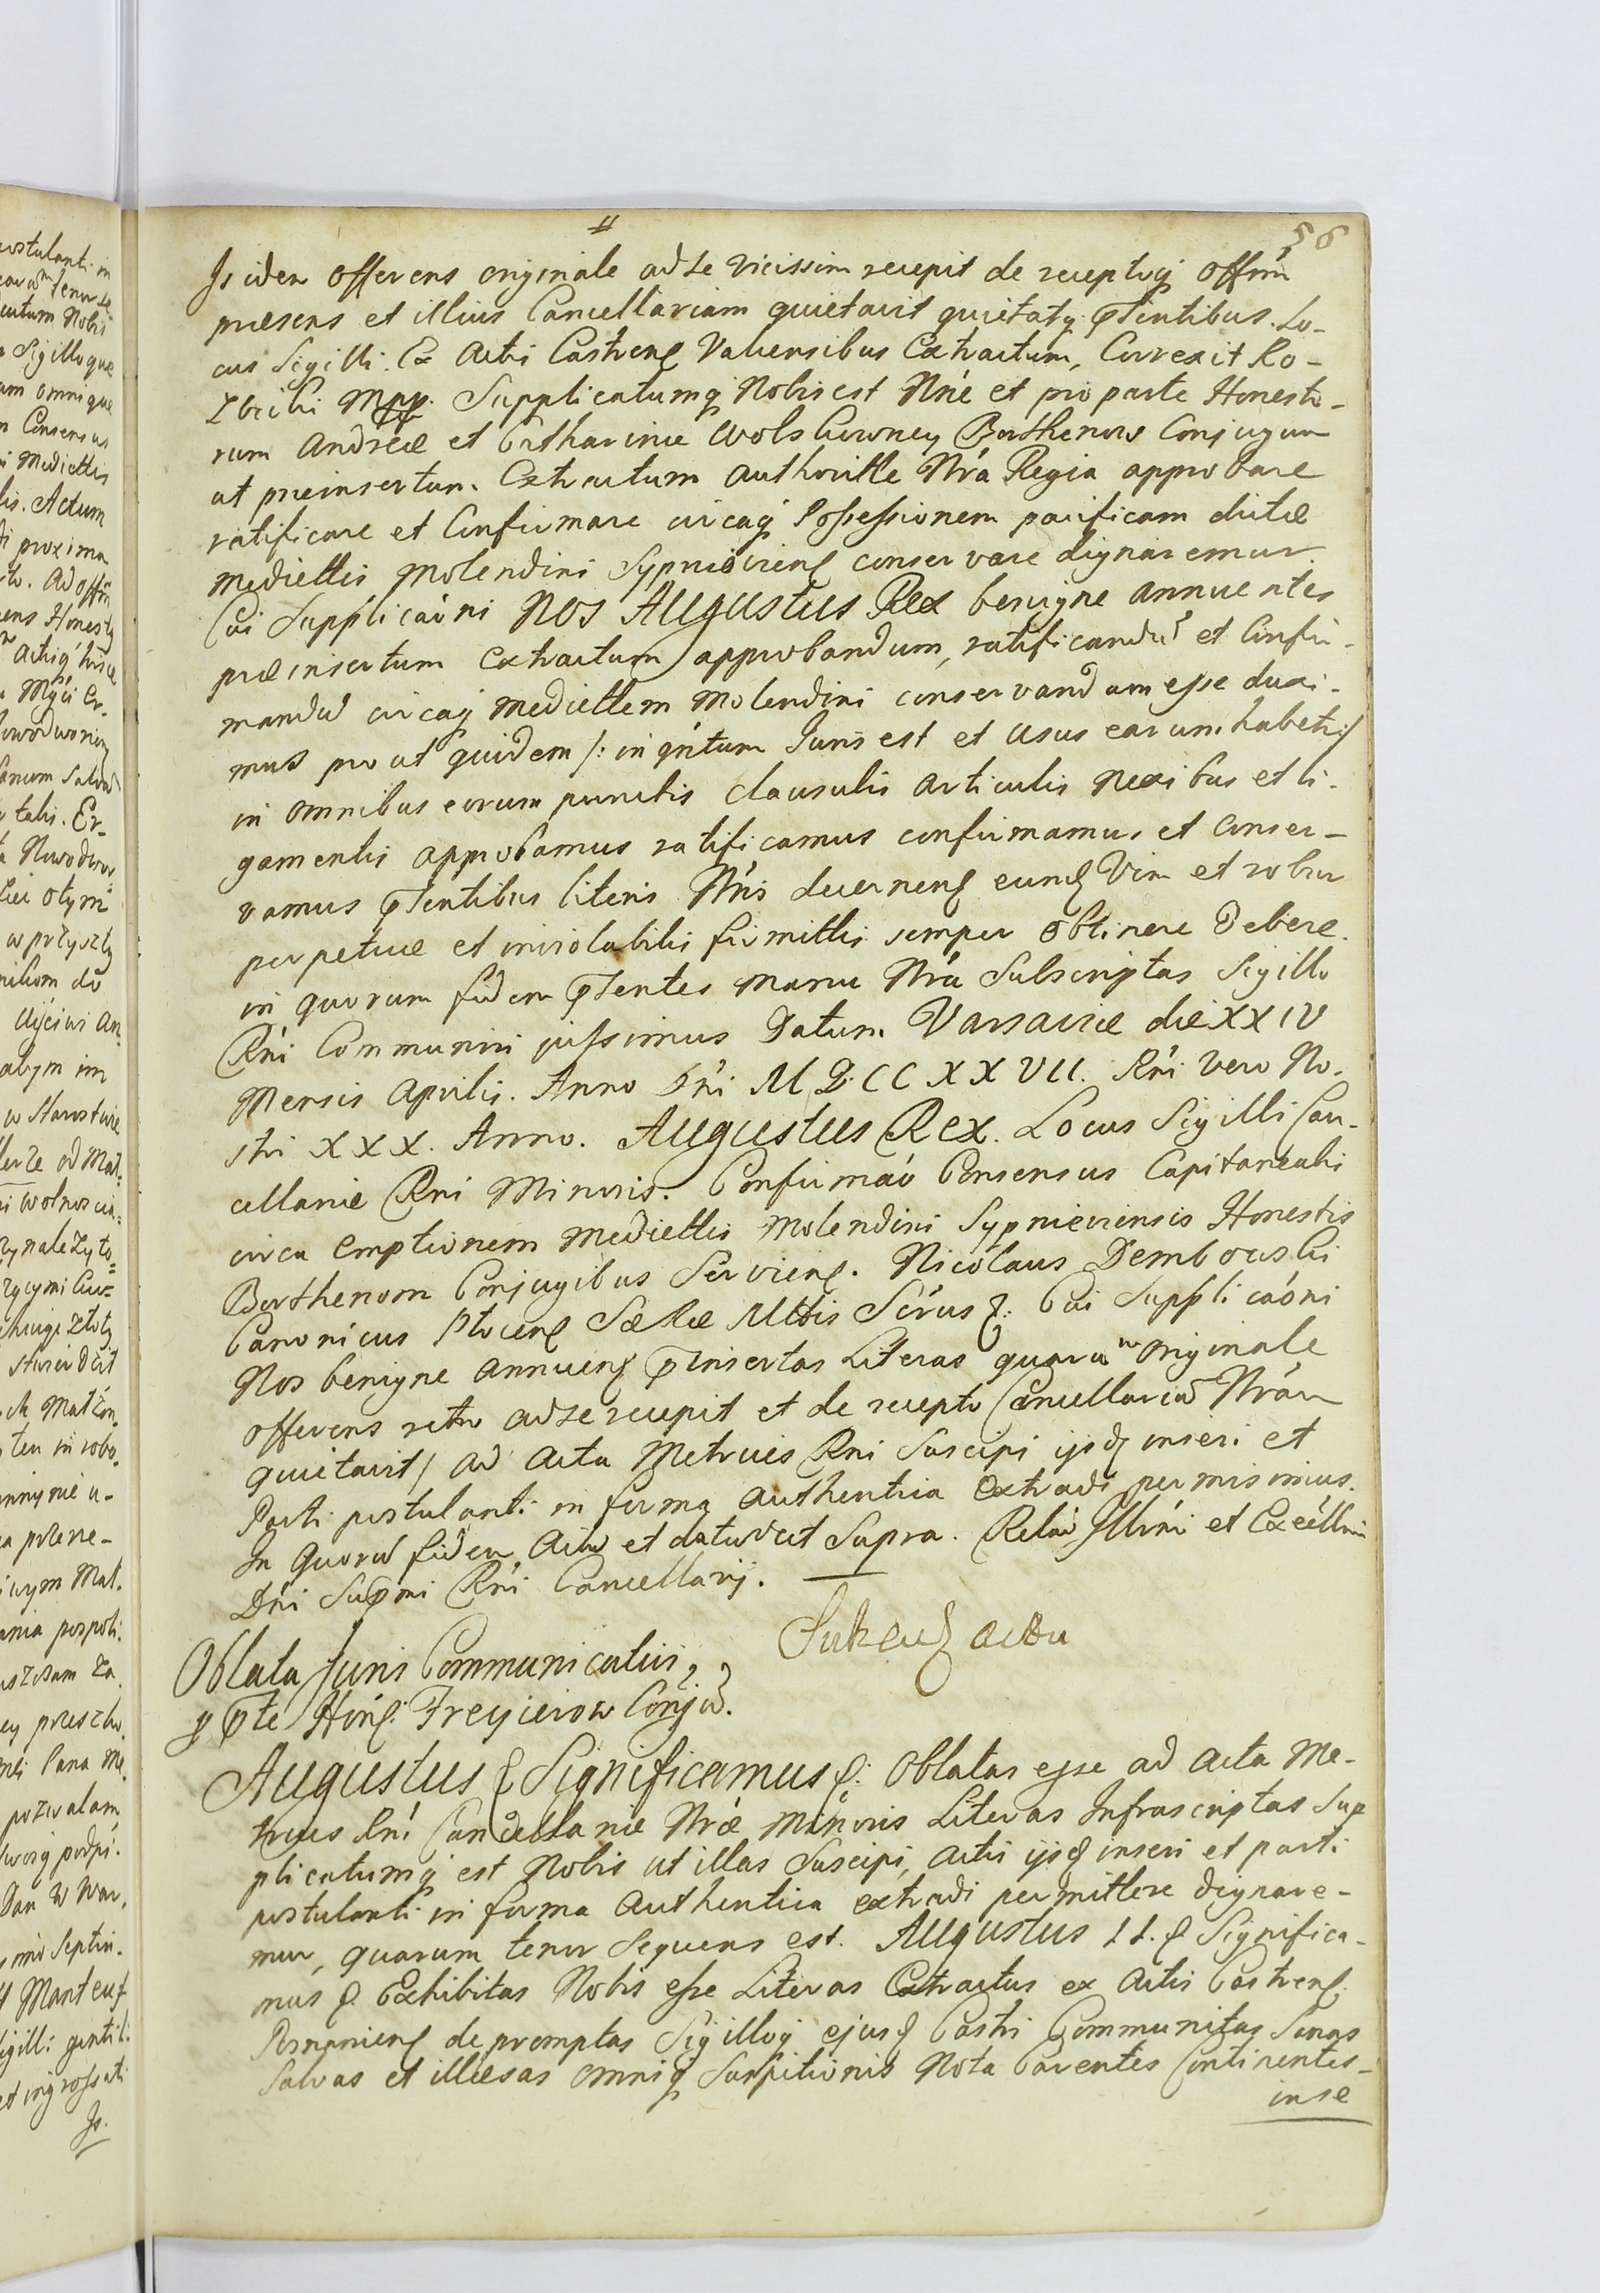 56
Is idem offerens originale ad se vicissim recepit de receptoq́ offm̃
præsens et illius Cancellariam quietavit quietatq́. p̃sentibus. Lo-
cus Sigilli. Ex Actis Castrenȩ Valcensibus Extractum, Correxit Ro-
zbicki Mpp. Supplicatumq́ Nobis est N̄ne et pro parte Honesto-
rum Andreæ et Catharinæ Bertherow Conjugum
ut preinsertum Extractum Authoritte N̄ra Regia approbare
ratificare et Confirmare circaq́ Possessionem pacificam dictæ
medietttis Molendini Sypnievienȩ conservare dignaremur.
Cui Supplicaõni Nos Augustus Rex benigne annuentes
præinsertum Extractum approbandum, ratificandũ et Confir-
mandũ circaq́ mediettem Molendini conservandam esse duxi-
mus prout quidem /: in q̃ntum Juris est et Usus earum habetur /
in omnibus eorum punctis clausulis articulis nexibus et li-
gamentis approbamus ratificamus confirmamus et conser-
vamus p̃sentibus literis N̄ris decernenȩ eumȩ Vim et robur
perpetuæ et inviolabilis firmittis semper obtinere Debere.
in quorum fidem p̃sentes manu N̄ra Subscriptas Sigillo
Rñi Communiri jussimus Datum Varsaviæ die XXIV
Mensis Aprilis. Anno Dñi MDCCXXVII. Rñi Vero No-
stri XXX. Anno. Augustus Rex. Locus Sigilli Can-
cellariæ Rñi Minoris. Confirmaõ Consensus Capitanealis
circa emptionem mediettis Molendini Sypnieviensis Honestis
Berthenom Conjugibus Servienȩ. Nicolaus Dembowski
Canonicus Plocenȩ SæRæ Mttis Sẽrus ȩ: Cui Supplicaõni
Nos benigne annuenȩ p̃insertas Literas quarũ originale
offerens retro ad se recepit et de recepto Cancellariã N̄ram
quietavit / ad Acta Metrices Rñi Suscipi ijsȩ inseri et
Parti postulanti in forma authentica Extradi permisimus.
In Quorũ fidem Actũ et datũ ut Supra. Relaõ Illm̃i et Excellm̃i
Dñi Sup̃mi Rñi Cancellarij.
Oblata Juris Communicativi,
p p̃te Honȩ: Freyierow Conjũ.
Augustus ȩ Significamus ȩ: Oblatas esse ad Acta Me-
trices Rñi Cancellariæ N̄ræ Minoris Literas Infrascriptas Sup
plicatumq́ est Nobis ut illas Suscipi, actis ijsȩ inseri et parti
postulanti in forma Authentica extradi permittere dignare-
mur, quarum tenor Sequens est. Augustus II. ȩ Significa-
mus ȩ. Exhibitas Nobis esse Literas Extractus ex Actis Castrenȩ.
Posnanienȩ depromptas Sigilloq́ ejusȩ Castri Communitas Sanas
Salvas et illæsas omniq́ Suspitionis Nota Carentes Continentes-
in se